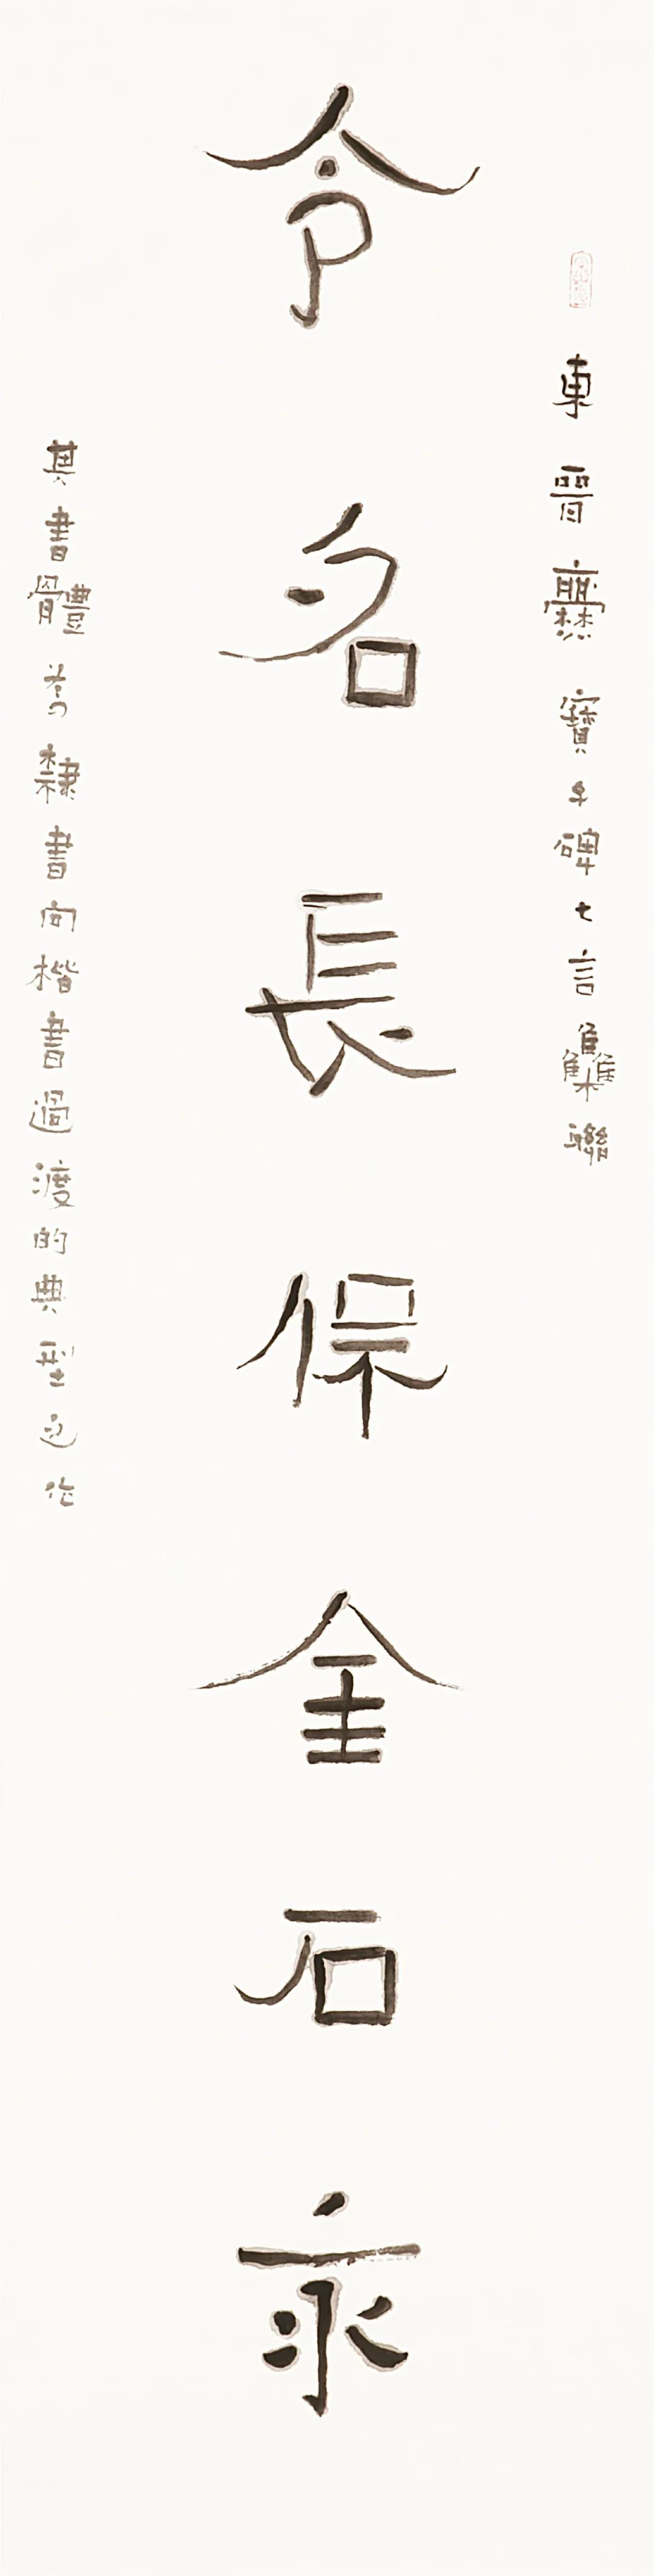 東晉爨寶子碑七言雙聯
令名長保金石永
其書體為隸書向楷書過渡的典型之作